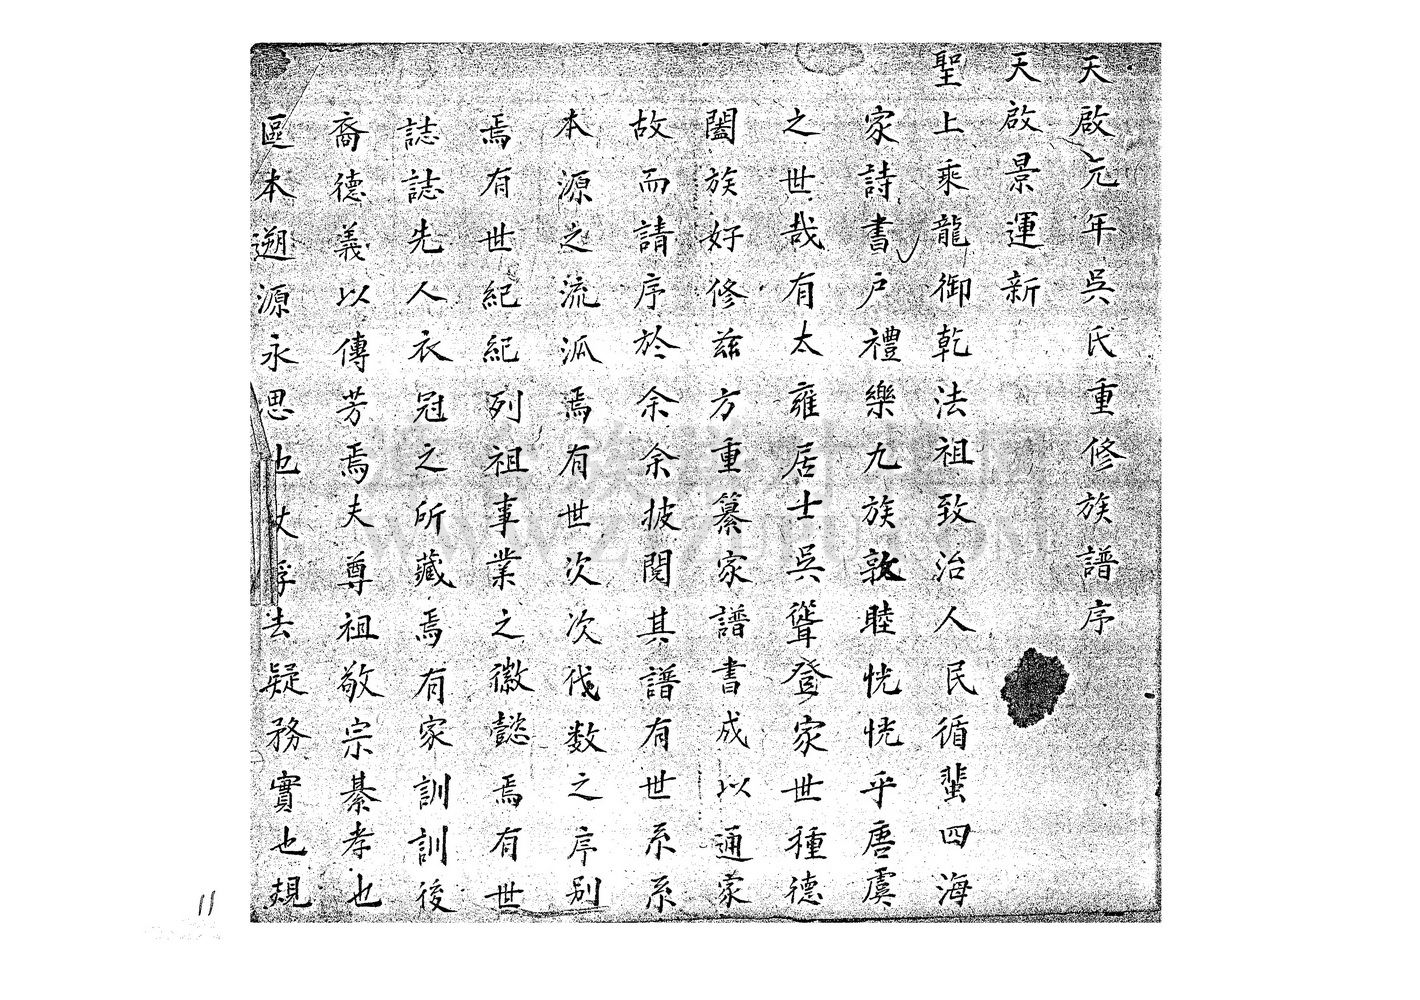 天啟元年吳氏重修族譜序
天啟景運新
聖上乘龍御乾法祖致治人民循蜚四海
家詩書戶禮樂九族敦睦恍恍乎唐虞
之世哉有太雍居士吳聳登家世種德
闔族好修茲方重纂家譜書成以通家
故而請序於余余披閱其譜有世系系
本源之流派焉有世次次代數之序別
焉有世紀紀列祖事業之徽懿焉有世
誌誌先人衣冠之所藏焉有家訓訓後
裔德義以傳芳焉夫尊祖敬宗綦孝也
區本遡源永思也 浮去疑務實也規
11
WWW.ZTZUPU.COM